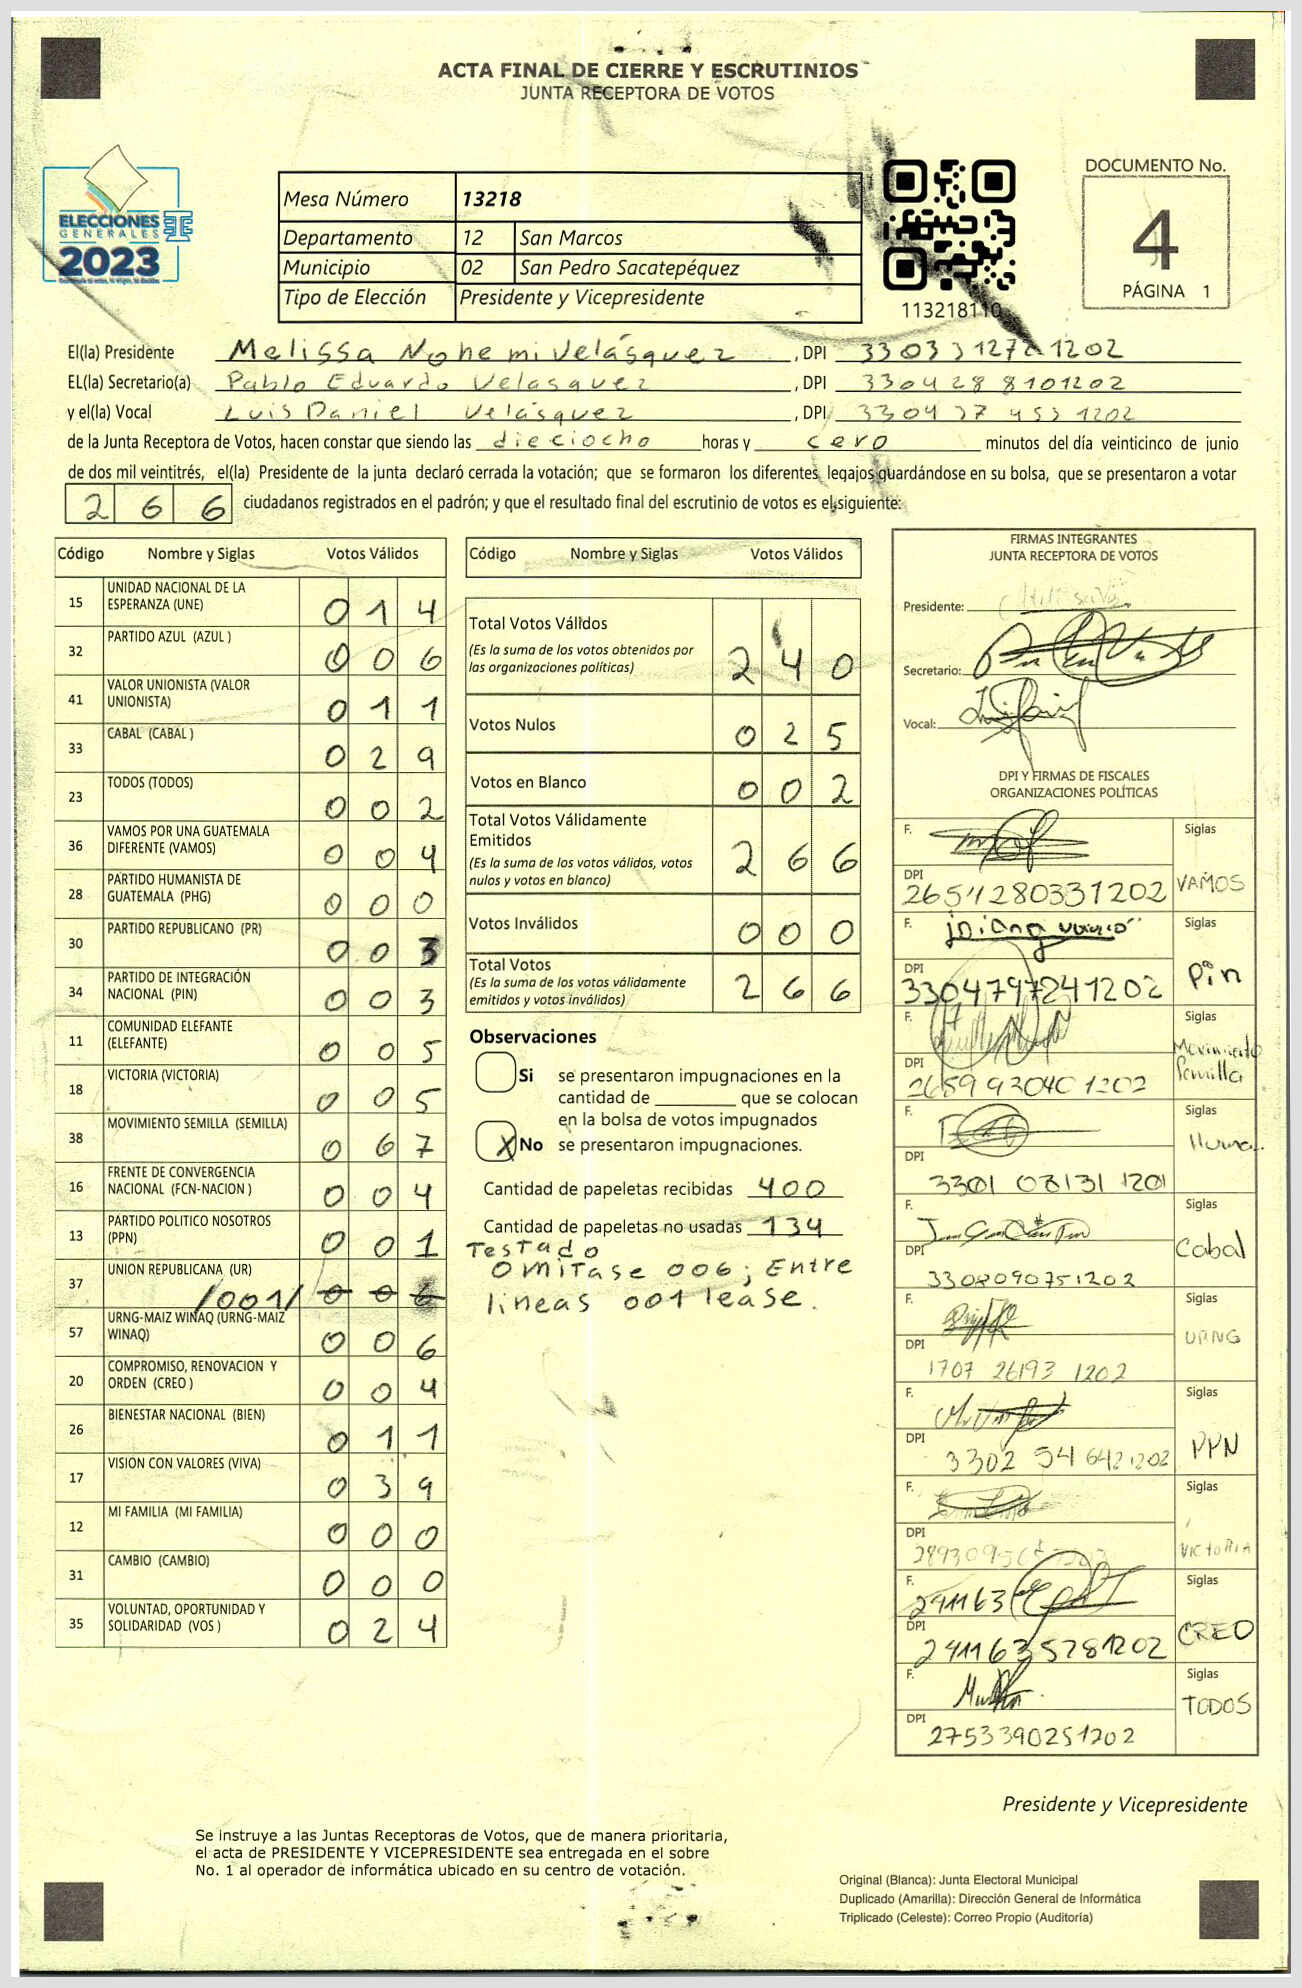 ACTA FINAL DE CIERRE Y ESCRUTINIOS
JUNTA RECEPTORA DE VOTOS
ELECCIONES
GENERALES
2023
Mesa Número 13218
Departamento 12 San Marcos
Municipio 02 San Pedro Sacatepéquez
Tipo de Elección Presidente y Vicepresidente
113218110
DOCUMENTO No.
4
PÁGINA 1
El(la) Presidente Melissa Nohemi Velásquez, DPI
EL(la) Secretario(a) Pablo Eduardo Velasquez, DPI 3304288101202
y el(la) Vocal Luis Daniel Velásquez, DPI 3304374531202
de la Junta Receptora de Votos, hacen constar que siendo las dieciocho horas y cero minutos del día veinticinco de junio
de dos mil veintitrés, el(la) Presidente de la junta declaró cerrada la votación; que se formaron los diferentes legajos guardándose en su bolsa, que se presentaron a votar
266 ciudadanos registrados en el padrón; y que el resultado final del escrutinio de votos es el siguiente:
Código Nombre y Siglas Votos Válidos
15 UNIDAD NACIONAL DE LA ESPERANZA (UNE) 014
32 PARTIDO AZUL (AZUL ) 006
41 VALOR UNIONISTA (VALOR UNIONISTA) 011
33 CABAL (CABAL ) 029
23 TODOS (TODOS) 002
36 VAMOS POR UNA GUATEMALA DIFERENTE (VAMOS) 004
28 PARTIDO HUMANISTA DE GUATEMALA (PHG) 000
30 PARTIDO REPUBLICANO (PR) 003
34 PARTIDO DE INTEGRACIÓN NACIONAL (PIN) 003
11 COMUNIDAD ELEFANTE (ELEFANTE) 005
18 VICTORIA (VICTORIA) 005
38 MOVIMIENTO SEMILLA (SEMILLA) 067
16 FRENTE DE CONVERGENCIA NACIONAL (FCN-NACION ) 004
13 PARTIDO POLITICO NOSOTROS (PPN) 001
37 UNION REPUBLICANA (UR) /001/ 006
57 URNG-MAIZ WINAQ (URNG-MAIZ WINAQ) 006
20 COMPROMISO, RENOVACION Y ORDEN (CREO ) 004
26 BIENESTAR NACIONAL (BIEN) 011
17 VISION CON VALORES (VIVA) 039
12 MI FAMILIA (MI FAMILIA) 000
31 CAMBIO (CAMBIO) 000
35 VOLUNTAD, OPORTUNIDAD Y SOLIDARIDAD (VOS ) 024
Código Nombre y Siglas Votos Válidos
Total Votos Válidos 240
(Es la suma de los votos obtenidos por
las organizaciones políticas)
Votos Nulos 025
Votos en Blanco 002
Total Votos Válidamente
Emitidos 266
(Es la suma de los votos válidos, votos
nulos y votos en blanco)
Votos Inválidos 000
Total Votos 266
(Es la suma de los votos válidamente
emitidos y votos inválidos)
Observaciones
Si se presentaron impugnaciones en la
cantidad de ________ que se colocan
en la bolsa de votos impugnados
X No se presentaron impugnaciones.
Cantidad de papeletas recibidas 400
Cantidad de papeletas no usadas 134
Testado
Omitase 006; Entre
lineas 001 lease.
FIRMAS INTEGRANTES
JUNTA RECEPTORA DE VOTOS
Presidente:
Secretario:
Vocal:
DPI Y FIRMAS DE FISCALES
ORGANIZACIONES POLÍTICAS
F. Siglas
DPI 2651280331202 VAMOS
F. Siglas
DPI 3304797241202 Pin
F. Siglas
DPI 2659930401202 Movimiento Semilla
F. Siglas
DPI 3301 08131 1201
F. Siglas
DPI 3308090751202 Cabal
F. Siglas
DPI 1707 26193 1202 URNG
F. Siglas
DPI 3302 54 6421202 PPN
F. Siglas
DPI VICTORIA
F. Siglas
DPI 2411635781202 CREO
F. Siglas
DPI 2753390251202 TODOS
Presidente y Vicepresidente
Se instruye a las Juntas Receptoras de Votos, que de manera prioritaria,
el acta de PRESIDENTE Y VICEPRESIDENTE sea entregada en el sobre
No. 1 al operador de informática ubicado en su centro de votación.
Original (Blanca): Junta Electoral Municipal
Duplicado (Amarilla): Dirección General de Informática
Triplicado (Celeste): Correo Propio (Auditoría)